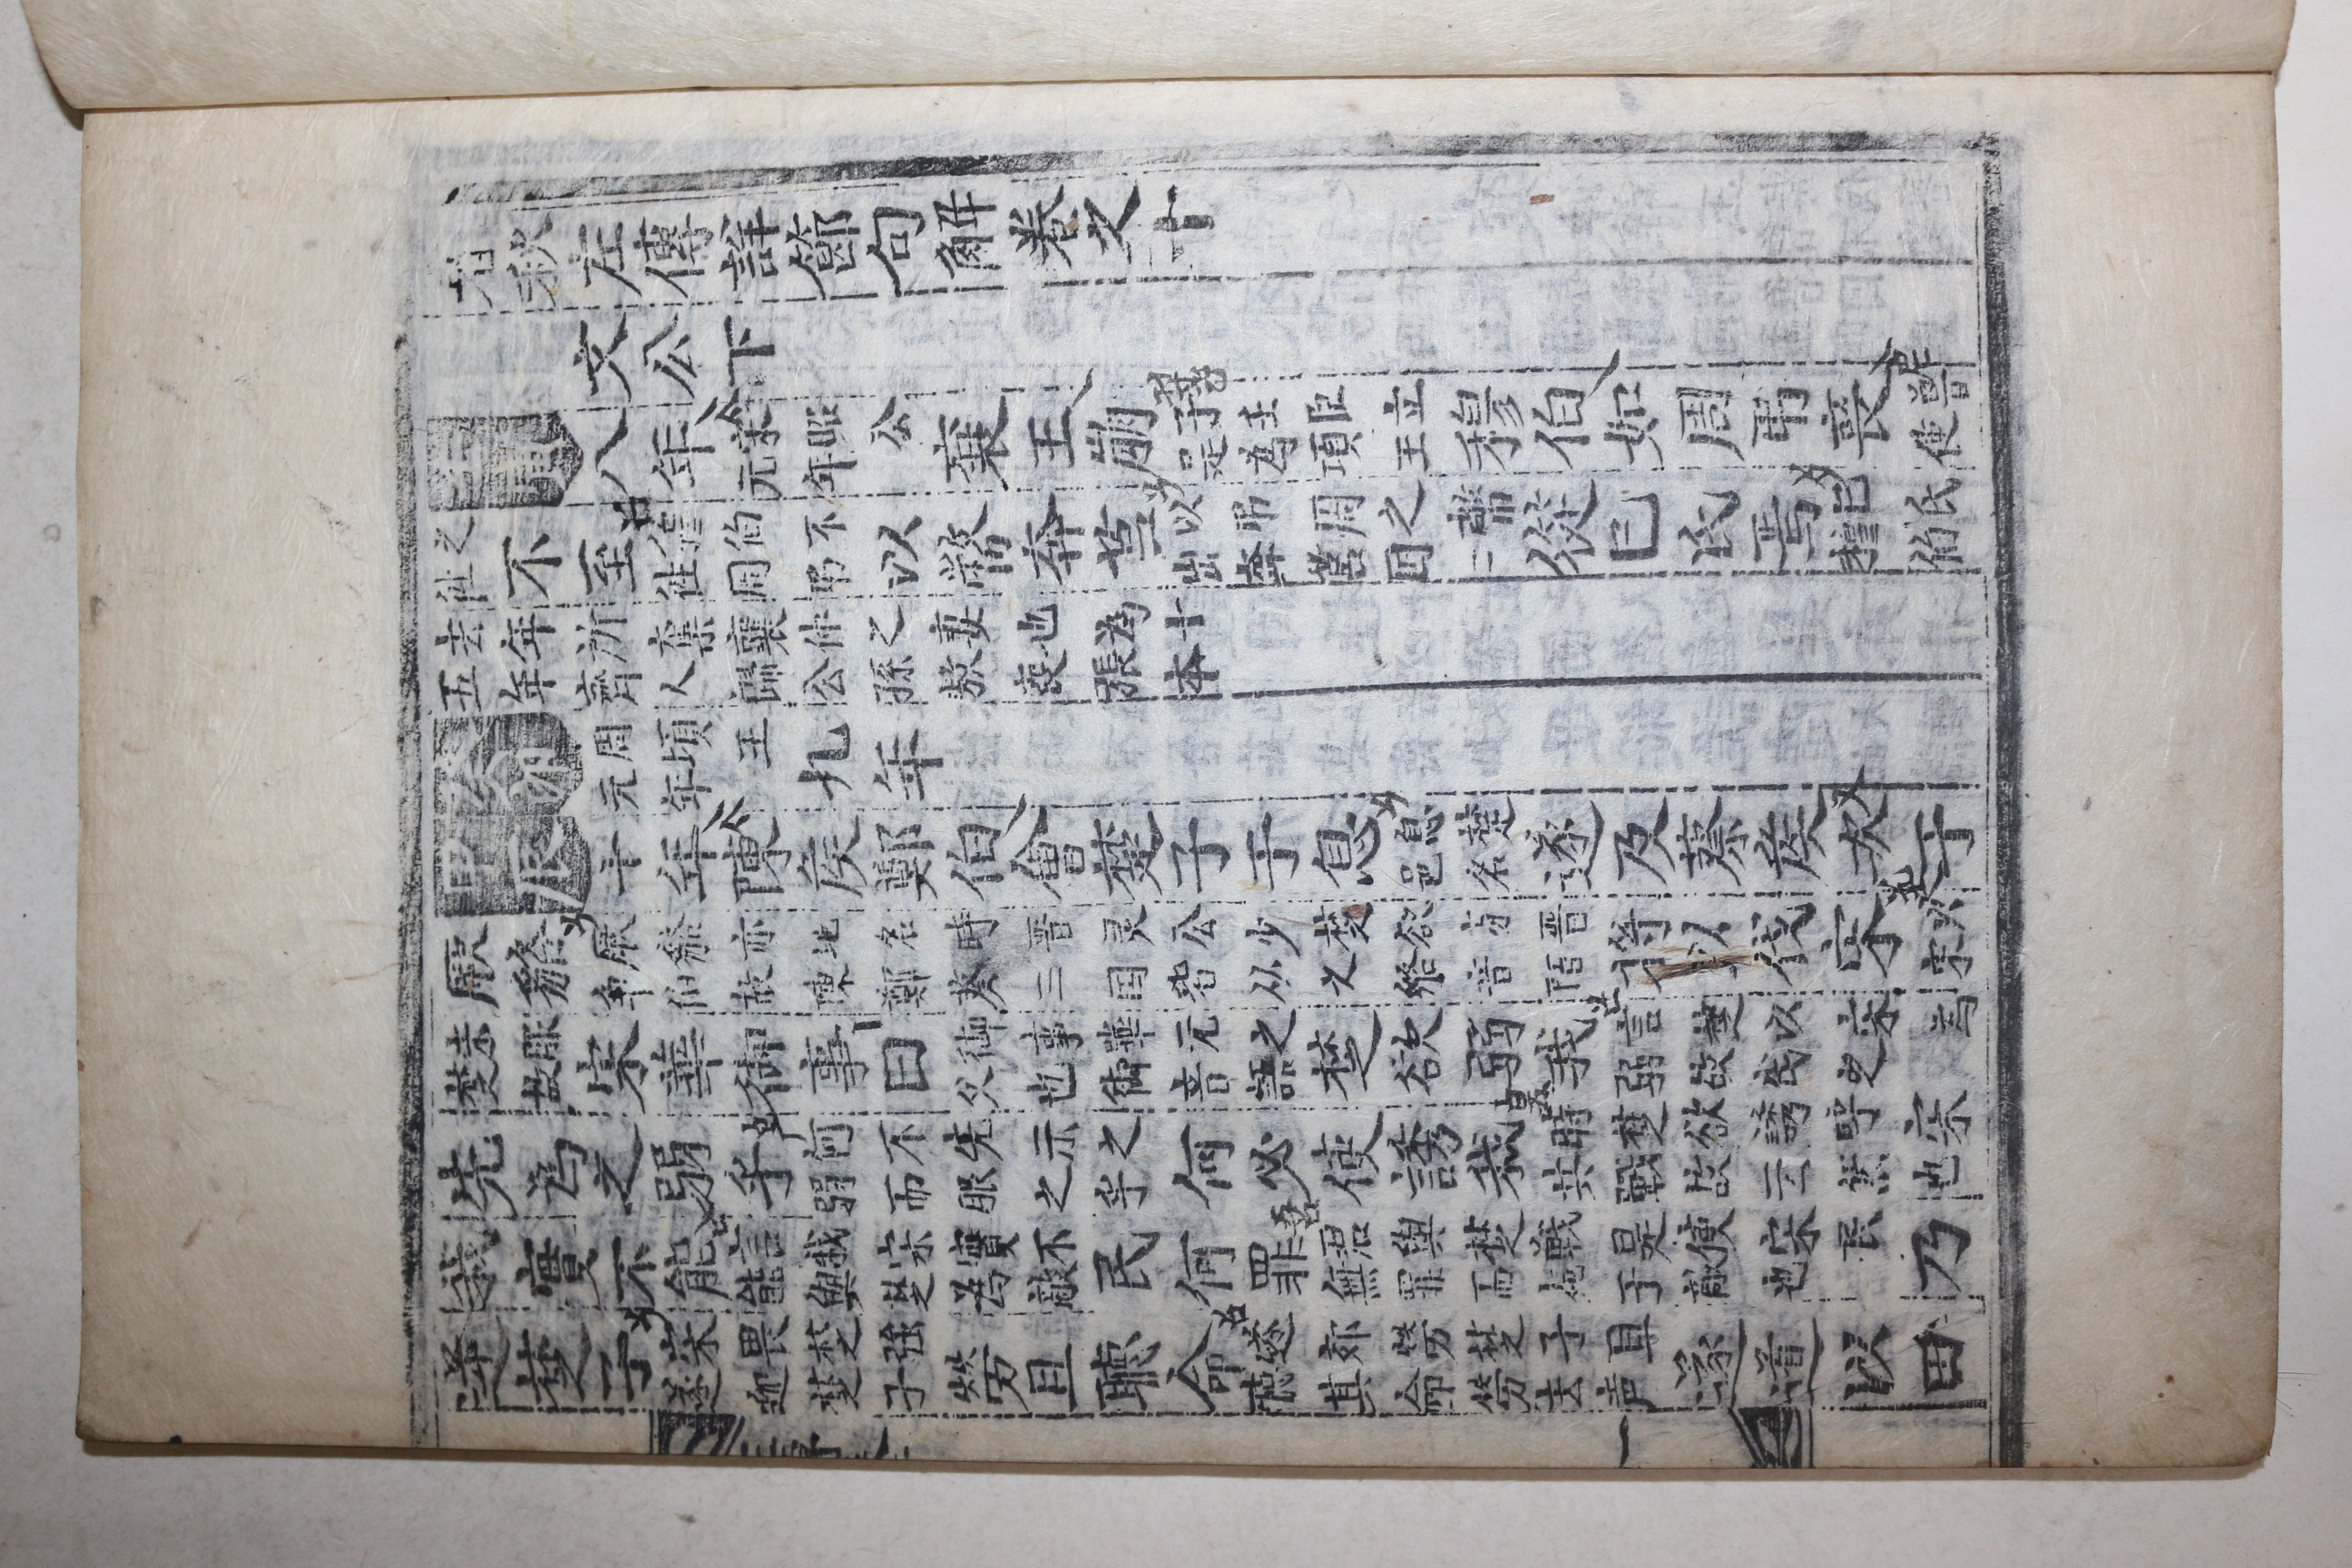 春秋左傳詳節句解卷之十
文公下
壬寅八年宋昭公元年襄王崩子壬臣立是為項王穆伯如周弔喪魯使
之徃不至穆伯不徃周弔以幣奔莒以弔周之幣出奔莒囯從已氏焉已氏穆伯
去年所棄襄仲之妻也為十五年齊人歸公孫敖喪張本
癸卯周頃王元年九年
甲辰十年陳矦鄭伯會楚子于息息楚邑名遂及蔡矦次于
厥貉厥貉亦地名時晋灵公少楚欲方晋爭伯故陳鄭蔡三囯皆从之貉音陌將以伐宋
未服楚故宋華御事曰御事華元之父也御音語楚欲弱我言楚以宋為弱故
先為之弱乎何不先示之弱而服之乎何必使誘我時楚欲誘呼宋共戰故云
我實不能言我宋實不能與楚為敵民何罪君與楚戰是使宋民無罪而死于敵也乃
逆楚子宋畏楚强遂迎楚子勞且聽命遂郊勞楚子且聽其命勞去声遂道以田
一